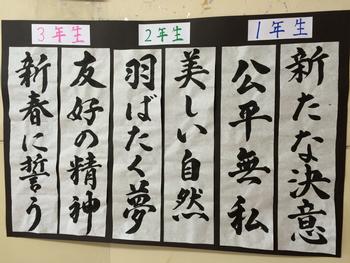 1年生
新たな決意
公平無私
2年生
美しい自然
羽ばたく夢
3年生
友好の精神
新春に誓う